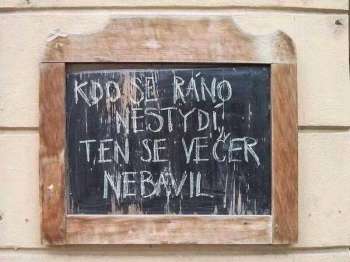 KDO SE RÁNO
NESTYDÍ,
TEN SE VEČER
NEBAVIL!